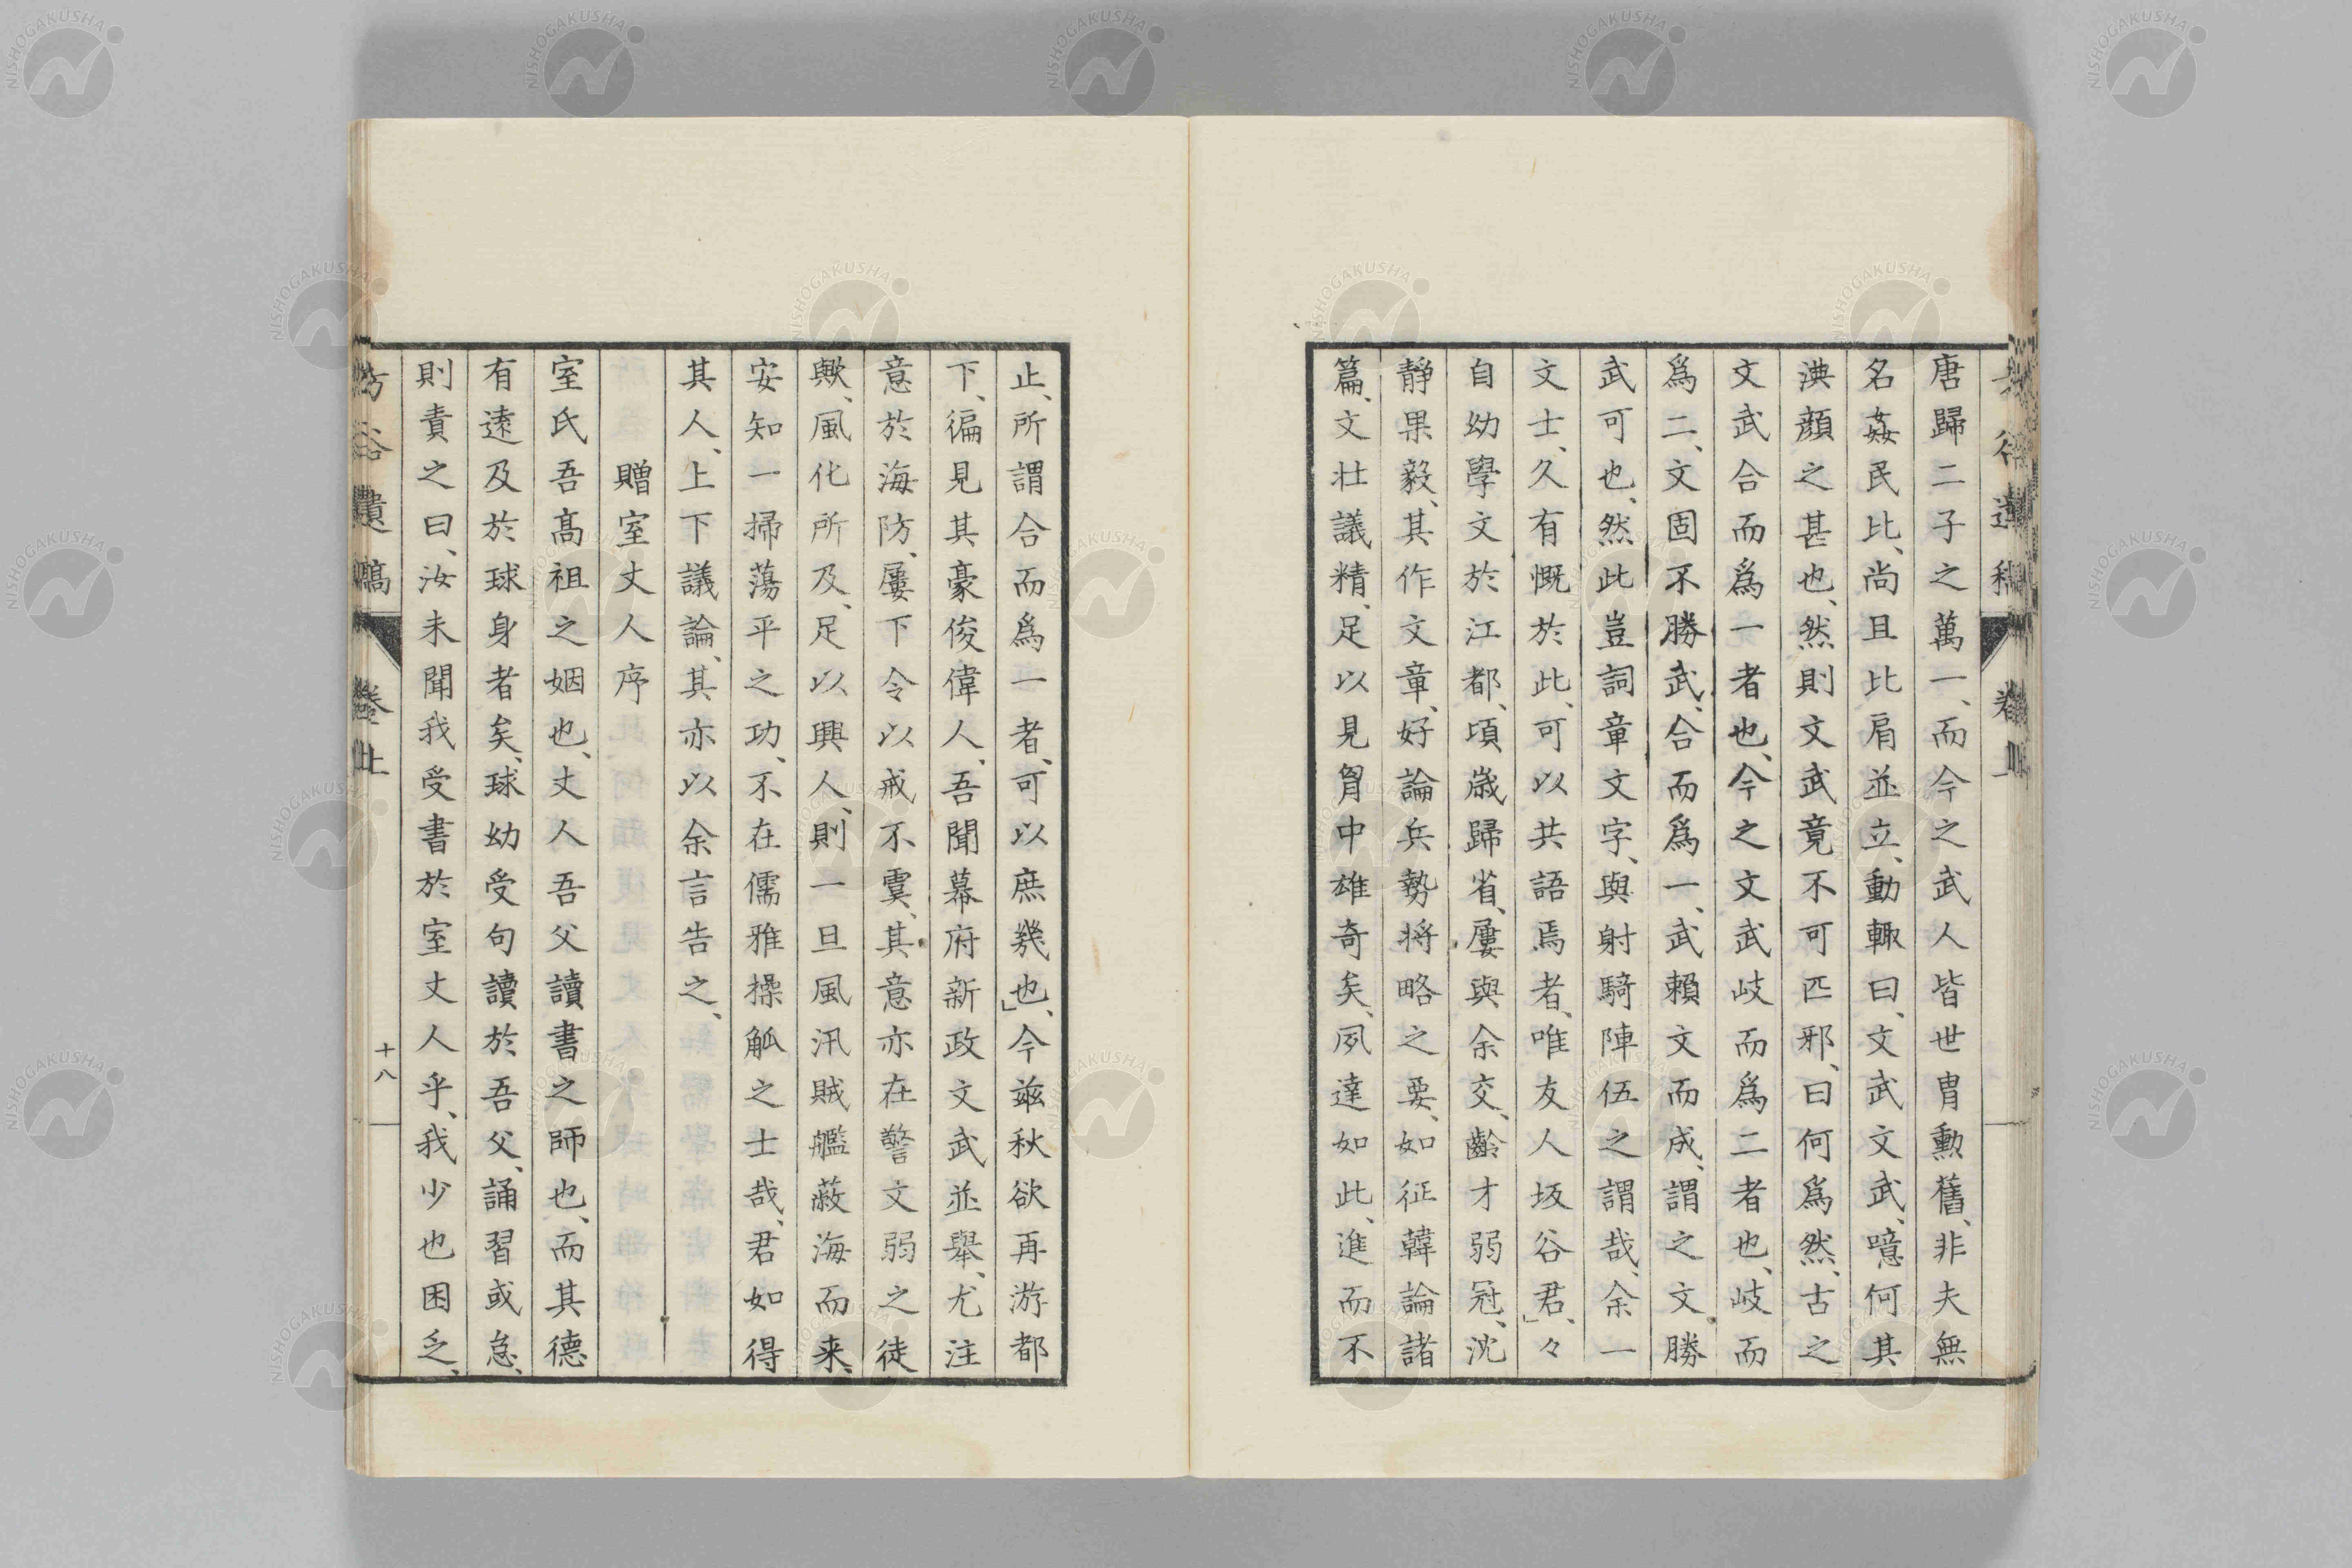 唐歸二子之萬一、而今之武人皆世冑勳舊、非夫無
名姦民比、尚且比肩並立、動輙曰、文武文武、噫何其
淟顏之甚也、然則文武竟不可匹邪、曰何爲然、古之
文武合而爲一者也、今之文武岐而爲二者也、岐而
爲二、文固不勝武、合而爲一、武賴文而成、謂之文勝
武可也、然此豈詞章文字、與射騎陣伍之謂哉、余一
文士、久有慨於此、可以共語焉者、唯友人坂谷君、々
自幼學文於江都、頃歳歸省、屢與余交、齡才弱冠、沈
靜果毅、其作文章、好論兵勢将略之要、如征韓論諸
篇、文壮議精、足以見胷中雄奇矣、夙達如此、進而不
止、所謂合而爲一者、可以庶幾也、」今玆秋欲再游都
下、徧見其豪俊偉人、吾聞幕府新政文武並舉、尤注
意於海防、屢下令以戒不虞、其意亦在警文弱之徒
歟、風化所及、足以興人、則一旦風汛賊艦蔽海而来、
安知一掃蕩平之功、不在儒雅操觚之士哉、君如得
其人、上下議論、其亦以余言告之、
贈室丈人序
室氏吾髙祖之姻也、丈人吾父讀書之師也、而其德
有遠及於球身者矣、球幼受句讀於吾父、誦習或怠、
則責之曰、汝未聞我受書於室丈人乎、我少也困乏、
谷遺稿 卷上 十八